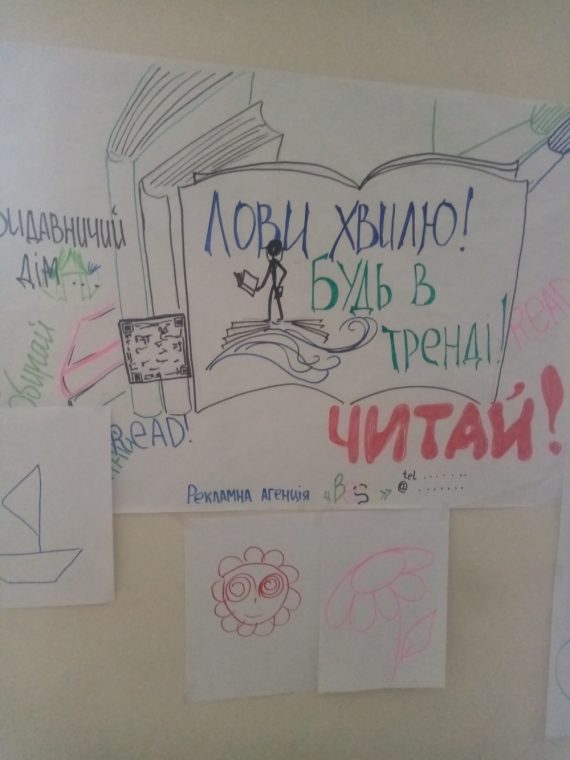 ЛОВИ ХВИЛЮ!
БУДЬ В
ТРЕНДІ!
ЧИТАЙ!
ВИДАВНИЧИЙ
ДІМ...
READ
READ!
РЕКЛАМНА АГЕНЦІЯ
tel .......
@ .......